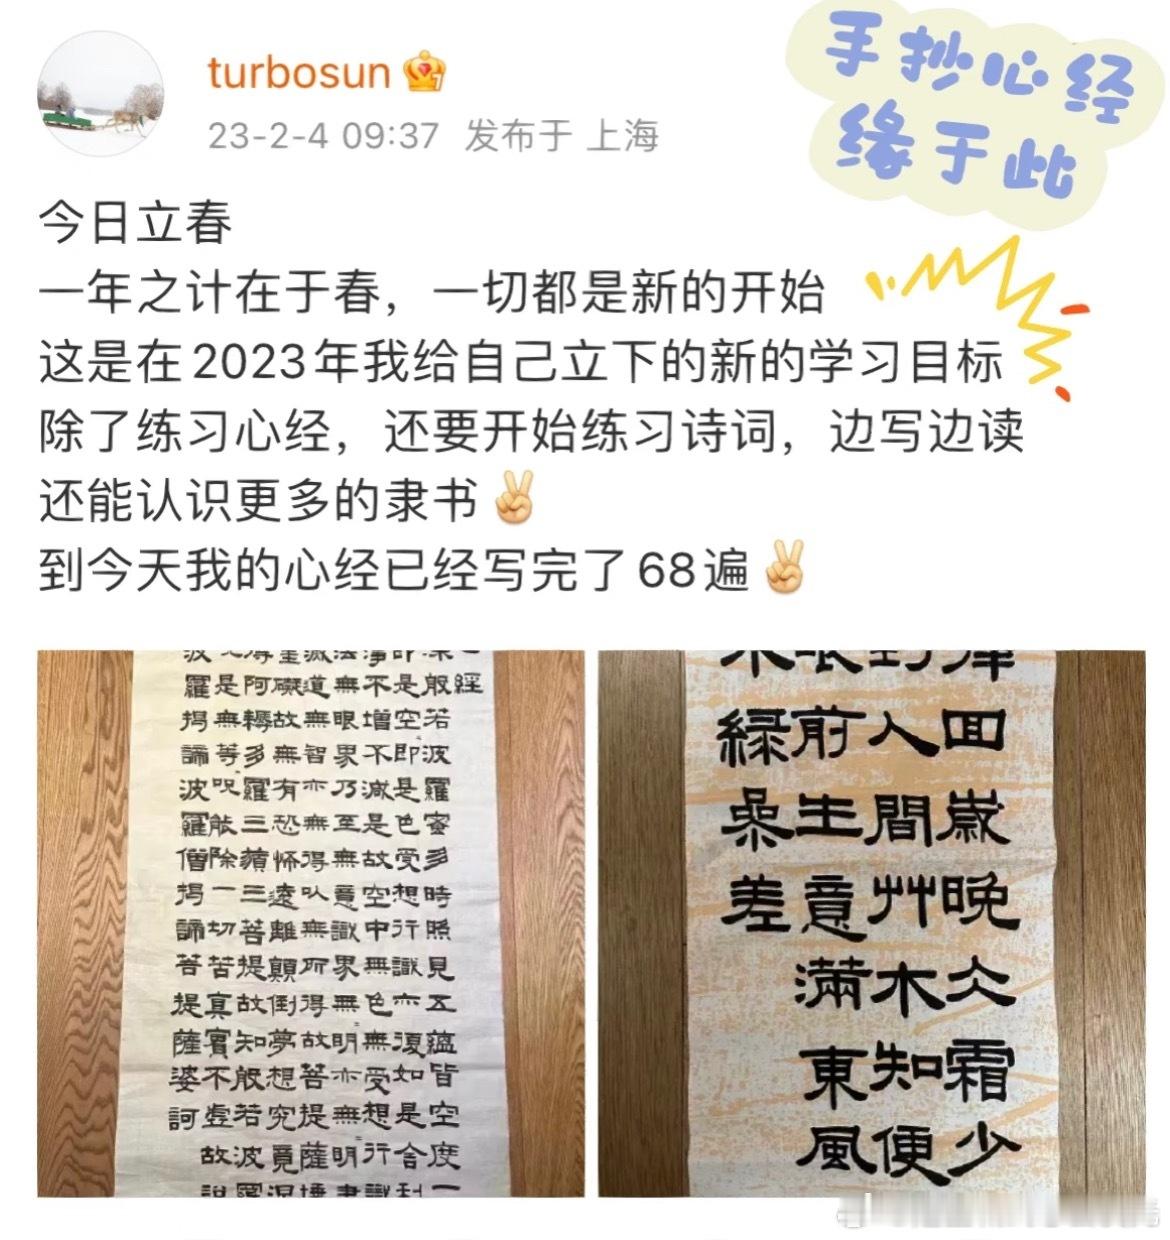 turbosun
23-2-4 09:37 发布于 上海
手抄心经
缘于此
今日立春
一年之计在于春，一切都是新的开始
这是在2023年我给自己立下的新的学习目标
除了练习心经，还要开始练习诗词，边写边读
还能认识更多的隶书✌🏻
到今天我的心经已经写完了68遍✌🏻
經
般若波羅蜜多時照見五蘊皆空度一
是空即是色受想行識亦復如是舍利
不增不減是故空中無色無受想行識
無眼界乃至無意識界無明亦無明盡
道無智亦無得以無所得故菩提薩埵
礙故無有恐怖遠離顛倒夢想究竟涅
阿耨多羅三藐三菩提故知般若波羅
是無等呪能除一切苦真實不虛故說
羅揭諦波羅僧揭諦菩提薩婆訶
回歲晚仌霜少
到人間艸木知便
眼前生意滿東風
綠差